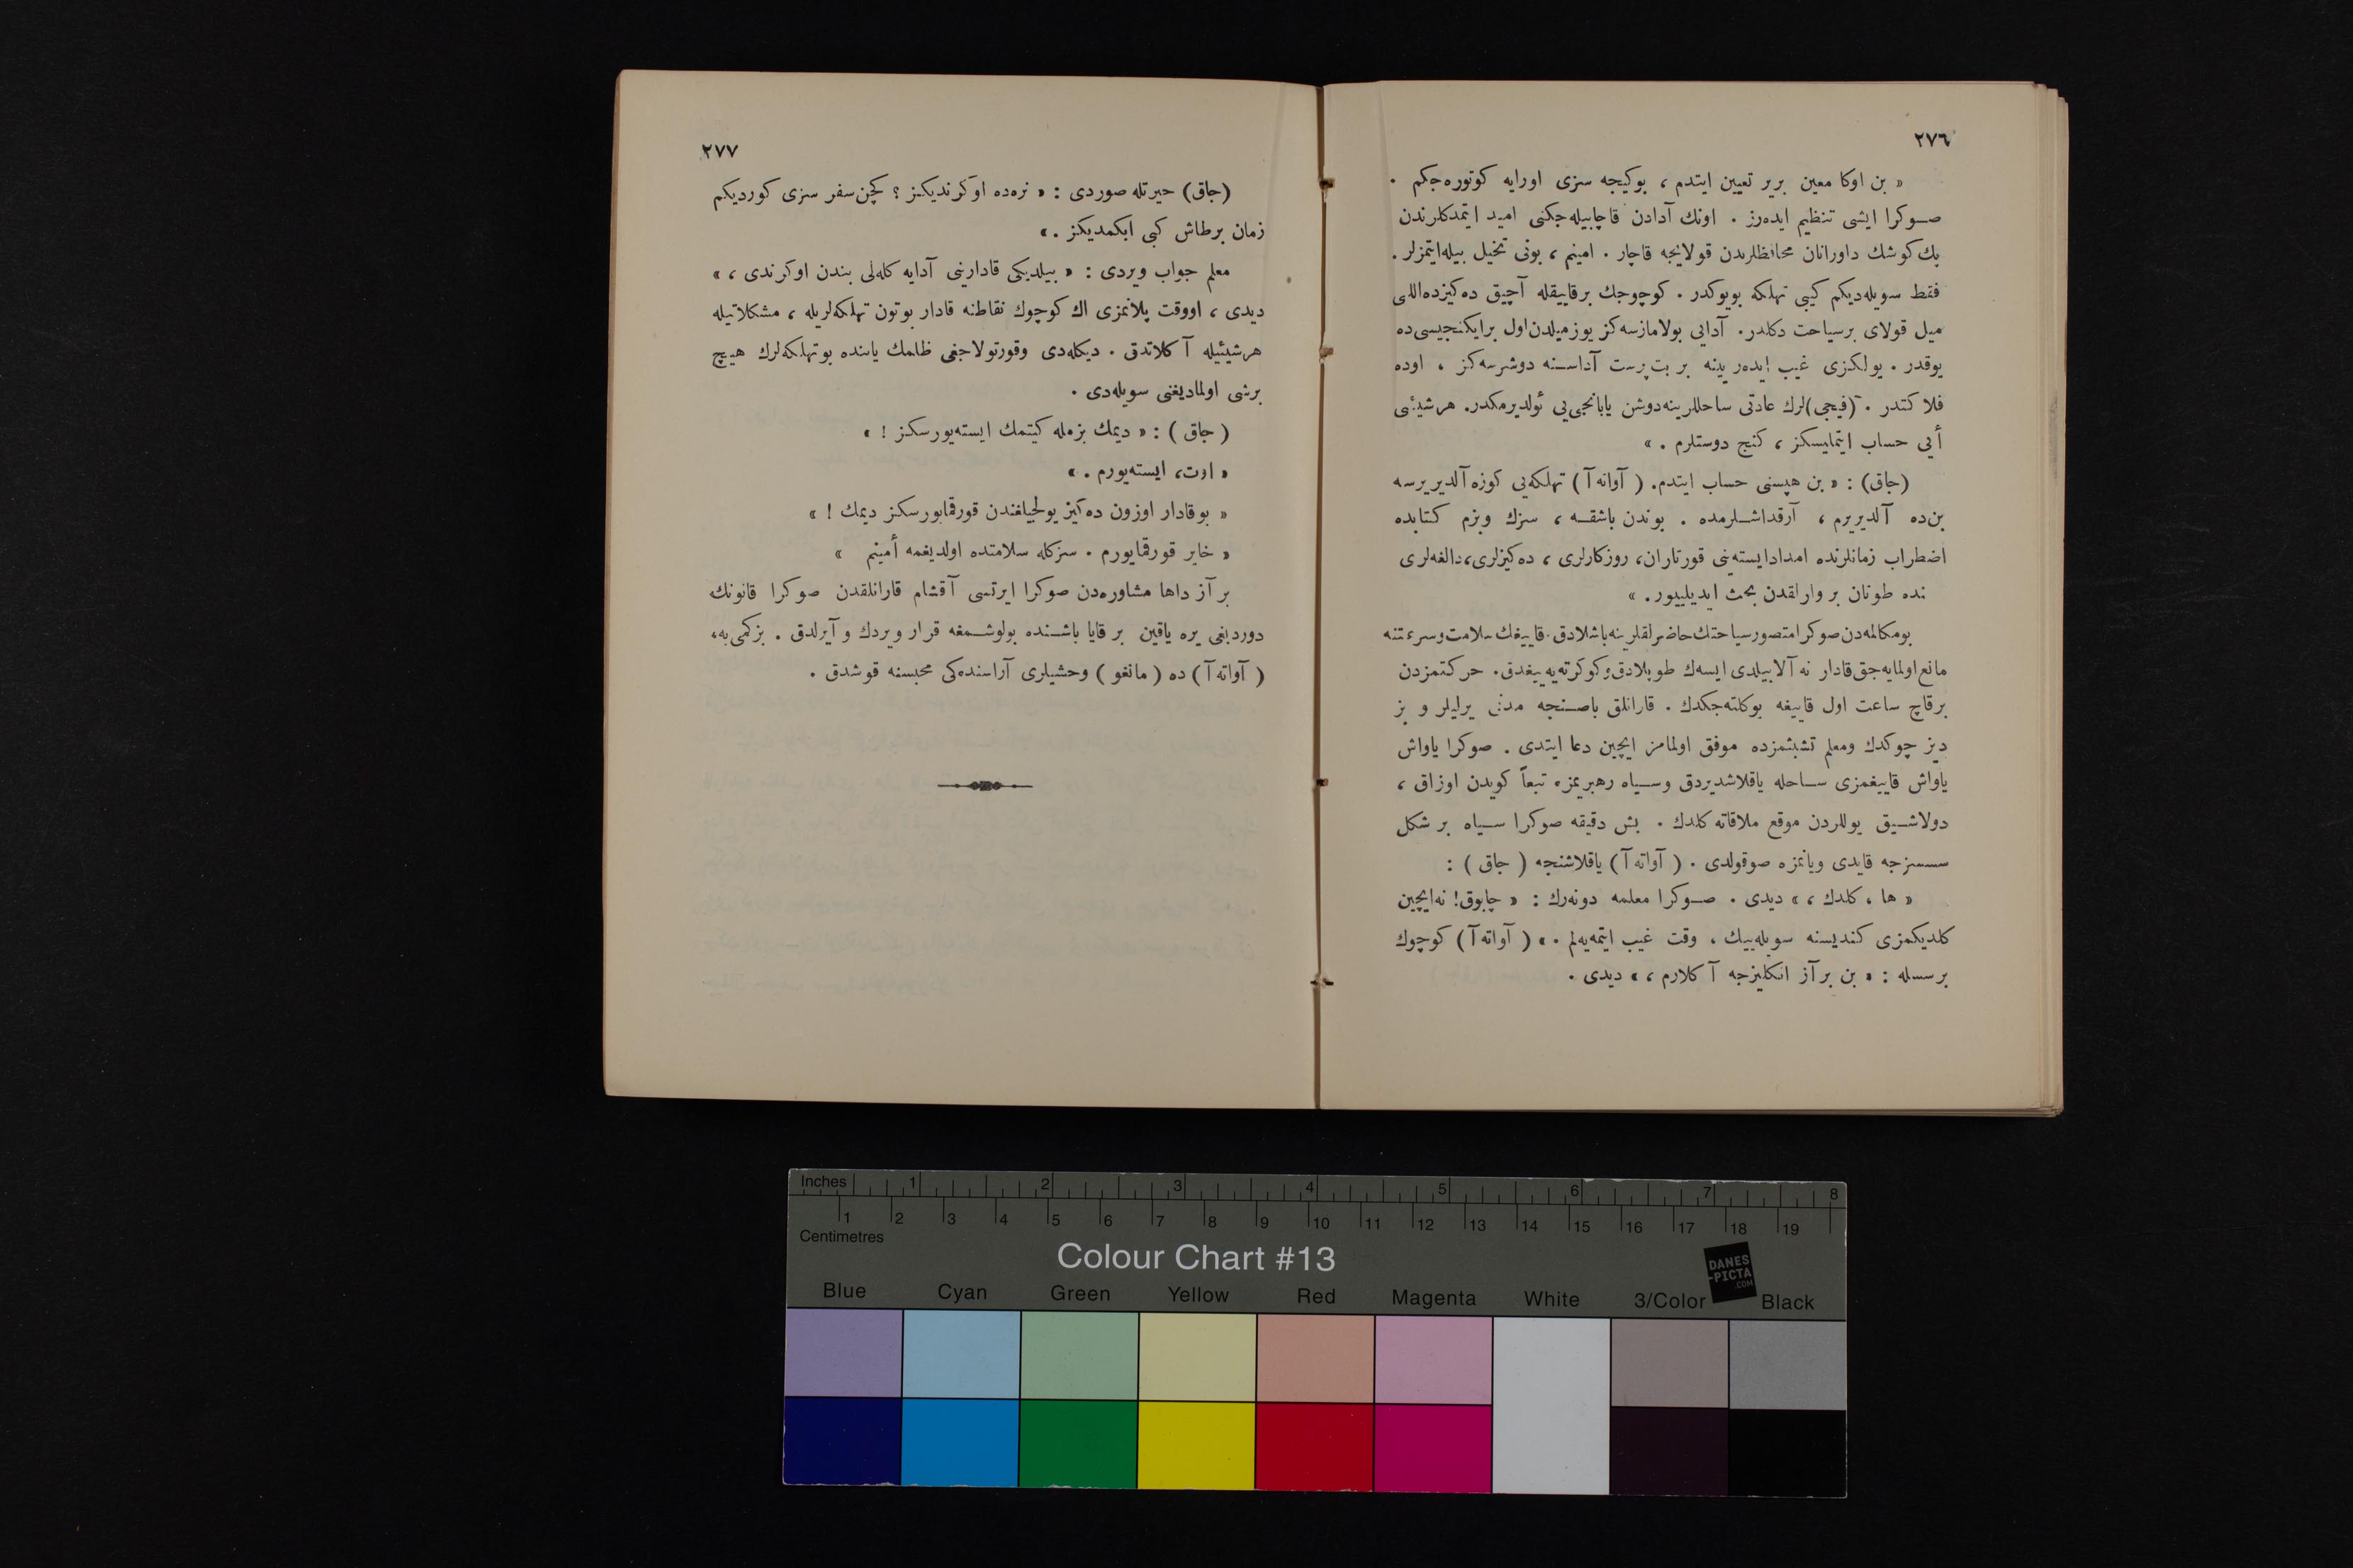 ٢٧٦
« بن اوكا معين برير تعيين ايتدم ، بوكيجه سزى اورايه كوتوره جكم .
صوكرا ايشى تنظيم ايده‌رز . اونك آدادن قاچابيله‌جكنى اميد ايتمدكلرندن
پك كوشك داورانان محافظلرندن قولايجه قاچار . امينم ، بونى تخيل بيله‌ايتمزلر .
فقط سويله‌ديكم كيبى تهلكه بويوكدر . كوچوجك برقاييقله آچيق ده‌كيزده‌اللى
ميل قولاى برسياحت دكلدر. آدايى بولامازسه‌كز يوزميلدن‌اول برايكنجيسى‌ده
يوقدر . يولكزى غيب ايده‌ر يينه بر بت‌پرست آداسنه دوشرسه‌كز ، اوده
فلاكتدر . (فيجى)لرك عادتى ساحللرينه‌دوشن يابانجى‌يى ئولديرمكدر. هرشيئى
أيى حساب ايتمليسكز ، كنج دوستلرم . »
(جاق) : « بن هپسنى حساب ايتدم. ( آواته‌آ ) تهلكه‌يى كوزه آلديريرسه
بن‌ده آلديريرم ، آرقداشلرمده . بوندن باشقه ، سزك وبزم كتابده
اضطراب زمانلرنده امدادايسته‌ينى قورتاران، روزكارلرى ، ده‌كيزلرى، دالغه‌لرى
ـنده طوتان بر وارلقدن بحث ايديلييور. »
بومكالمه‌دن‌صوكرامتصورسياحتك‌حاضرلقلرينه‌باشلادق. قاييغك‌سلامت‌وسرعتنه
مانع‌اولمايه‌جق‌قادار نه آلابيلدى ايسه‌ك طوپلادق‌وكوكرته‌يه‌ييغدق. حركتمزدن
برقاچ ساعت اول قاييغه بوكلته‌جكدك . قارانلق باصنجه مدنى يرليلر و بز
ديز چوكدك ومعلم تشبثمزده موفق اولمامز ايچين دعا ايتدى . صوكرا ياواش
ياواش قاييغمزى ساحله ياقلاشديردق وسياه رهبريمزه تبعاً كويدن اوزاق ،
دولاشيق يوللردن موقع ملاقاته كلدك . بش دقيقه صوكرا سياه بر شكل
سسزجه قايدى ويانمزه صوقولدى . ( آواته‌آ ) ياقلاشنجه ( جاق ) :
« ها ، كلدك ، » ديدى . صوكرا معلمه دونه‌رك : « چابوق! نه‌ايچين
كلديكمزى كنديسنه سويله‌ييك ، وقت غيب ايتمه‌يه‌لم . » ( آواته‌آ ) كوچوك
برسسله : « بن برآز انكليزجه آكلارم ، » ديدى .
٢٧٧
(جاق) حيرتله صوردى : « نره‌ده اوكرنديكز ؟ كچن‌سفر سزى كورديكم
زمان برطاش كبى ابكمديكز . »
معلم جواب ويردى : « بيلديكى قادارينى آدايه كله‌لى بندن اوكرندى ، »
ديدى ، اووقت پلانمزى اك كوچوك نقاطنه قادار بوتون تهلكه‌لريله ، مشكلاتيله
هرشيئيله آكلاتدق . ديكله‌دى وقورتولاجغى ظلمك ياننده بوتهلكه‌لرك هيچ
برشى اولماديغنى سويله‌دى .
( جاق ) : « ديمك بزمله كيتمك ايسته‌يورسكز ! »
« اوت، ايسته‌يورم . »
« بوقادار اوزون ده‌كيز يولجيلغندن قورقمايورسكز ديمك ! »
« خاير قورقمايورم . سزكله سلامتده اولديغمه أمينم »
بر آز داها مشاوره‌دن صوكرا ايرتسى آقشام قارانلقدن صوكرا قانونك
دوردیغى يره ياقين بر قايا باشنده بولوشمغه قرار ويردك و آيرلدق . بزكمى‌يه،
( آواته‌آ ) ده ( مانغو ) وحشيلرى آراسنده‌كى محبسنه قوشدق .
Inches 1 2 3 4 5 6 7 8
1 2 3 4 5 6 7 8 9 10 11 12 13 14 15 16 17 18 19
Centimetres
Colour Chart #13
DANES
-PICTA
.COM
Blue Cyan Green Yellow Red Magenta White 3/Color Black